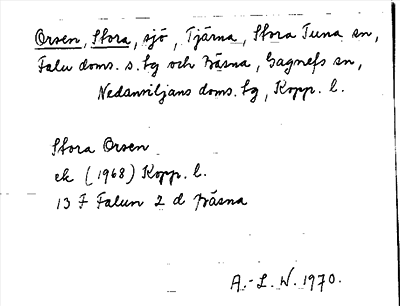 Orsen, Stora, sjö, Tjärna, Stora Tuna sn,
Falu doms. s. tg och Bäsna, Gagnefs sn,
Nedansiljans doms. tg, Kopp. l.
Stora Orsen
ek (1968) Kopp. l.
13 F Falun 2 d Bäsna
A.-L. W. 1970.